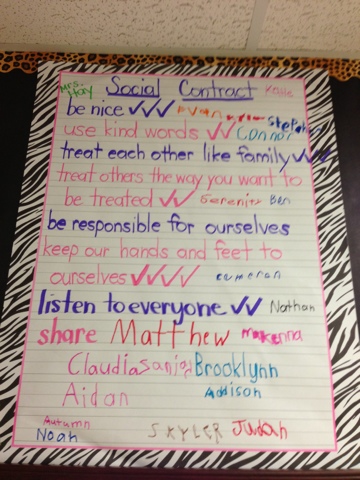 Mrs. Hay Social Contract Kasie
be nice ✓✓✓ Evan
use kind words ✓✓ Connor Stephen
treat each other like family ✓✓
treat others the way you want to
be treated ✓✓ Serenity Ben
be responsible for ourselves
keep our hands and feet to
ourselves ✓✓✓✓ cameran
listen to everyone ✓✓ Nathan
share Matthew makenna
Claudia Brooklynn
Aidan Addison
Autumn
Noah SKYLER Judah